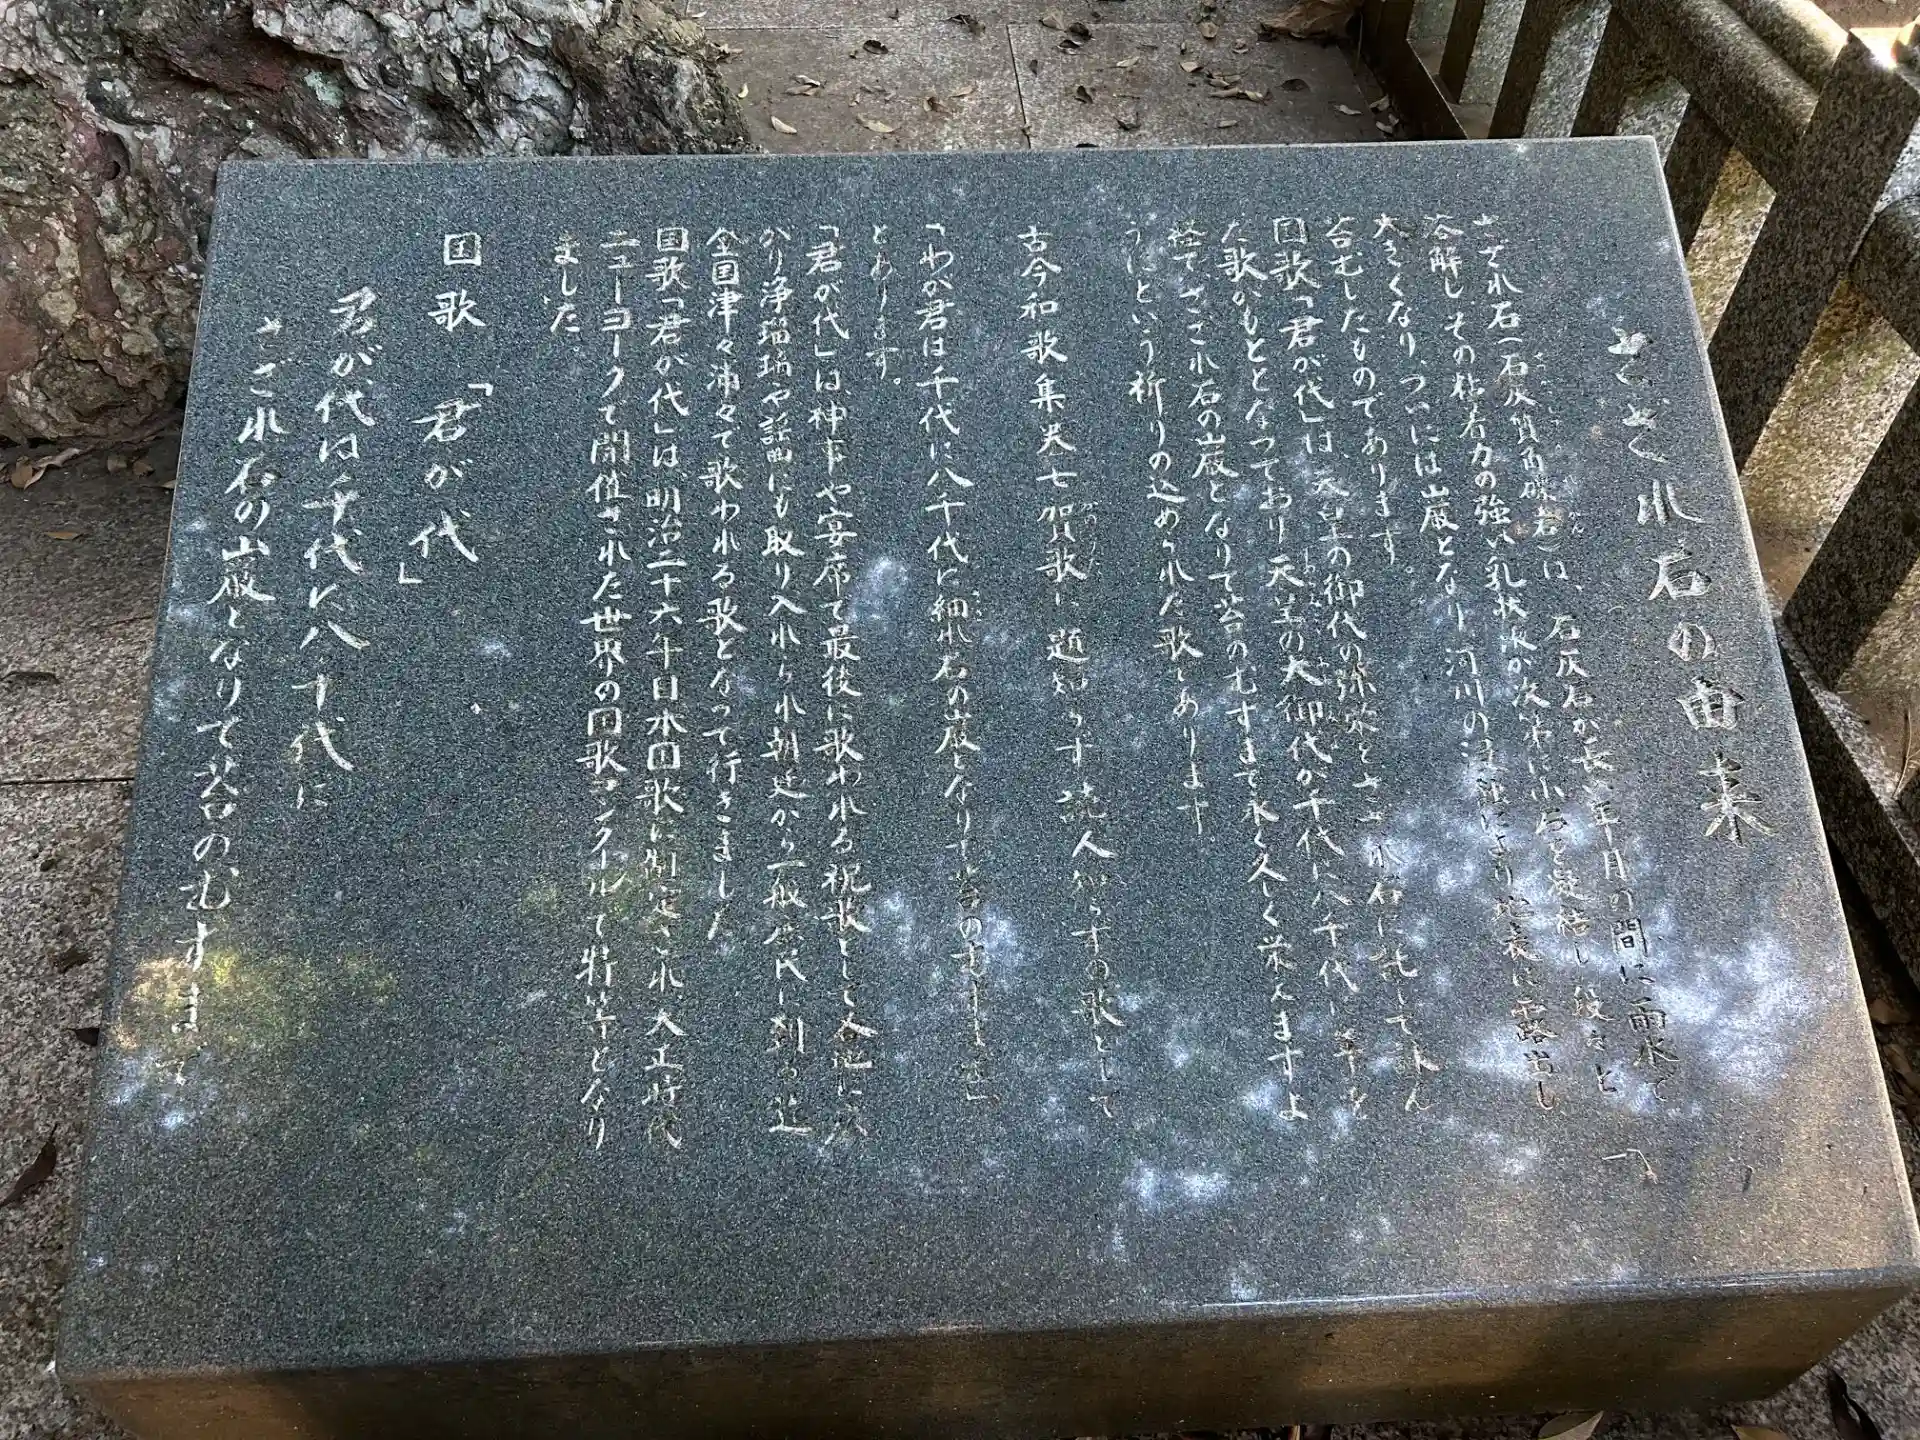 さざれ石の由来
さざれ石(石灰質角礫岩)は、石灰石が長い年月の間に雨水で
溶解し、その粘着力の強い乳状液が次第に小石を凝結し、段々と
大きくなり、ついには巌となり、河川の浸蝕により地表に露出し、
苔むしたものであります。
国歌「君が代」は、天皇の御代の弥栄をさざれ石に託して詠ん
だ歌がもととなっており天皇の大御代が千代に八千代に年を
経て、さざれ石の巌となりて苔のむすまで永く久しく栄えますよ
うにという祈りの込められた歌であります。
古今和歌集巻七賀歌に題知らず読人知らずの歌として
「わが君は千代に八千代に細れ石の巌となりて苔のむすまで」
とあります。
「君が代」は、神事や宴席で最後に歌われる祝歌として各地に広
がり浄瑠璃や謡曲にも取り入れられ朝廷から一般庶民に到る迄
全国津々浦々で歌われる歌となって行きました
国歌「君が代」は、明治二十六年日本国歌に制定され、大正時代
ニューヨークで開催された世界の国歌コンクールで特等となり
ました。
国歌「君が代」
君が代は千代に八千代に
さざれ石の巌となりて苔のむすまで